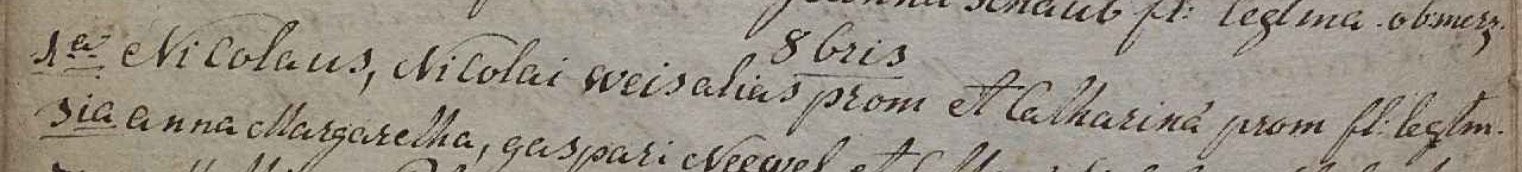 schaub fl: legtma. obmerz.
8bris
1a. Nicolaus, Nicolai weis alias prom et Catharina prom fl: legtm.
3ia anna Margaretha, gaspari Neewel et